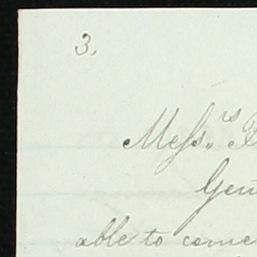 3.
Mess.rs
Gen
able to come